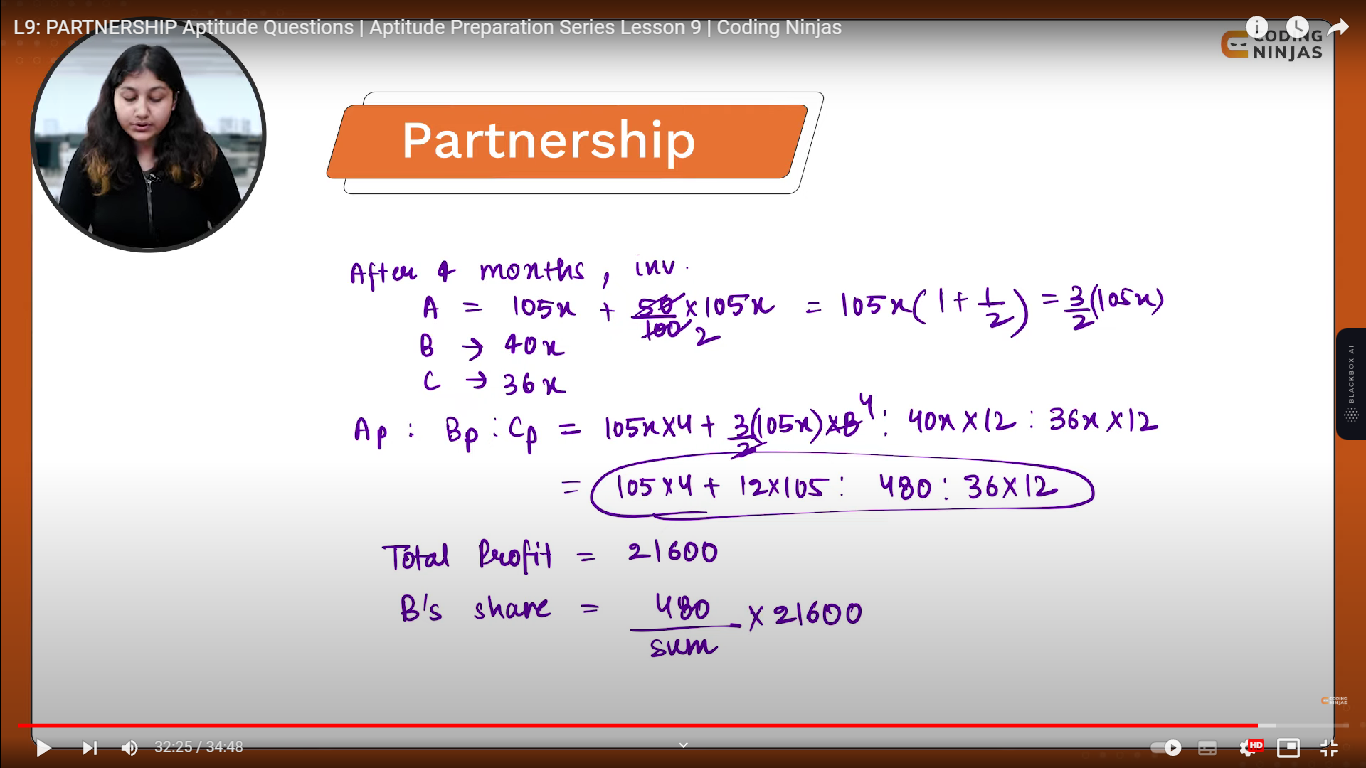 L9: PARTNERSHIP Aptitude Questions | Aptitude Preparation Series Lesson 9 | Coding Ninjas
CODING
NINJAS
Partnership
After 4 months, inv.
A = 105x + 50/100 2 × 105x = 105x(1 + 1/2) = 3/2(105x)
B → 40x
C → 36x
Ap : Bp : Cp = 105x×4 + 3/2(105x)×8 4 : 40x×12 : 36x×12
= 105×4 + 12×105 : 480 : 36×12
Total Profit = 21600
B's share = 480/sum × 21600
BLACKBOX AI
CODING
NINJAS
32:25 / 34:48
HD